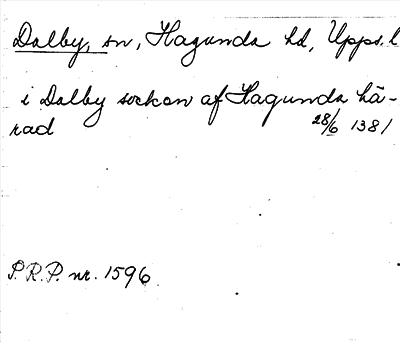 Dalby, sn, Hagunda hd, Upps. l
i Dalby sockon af Hagunda hä-
rad 28/6 1381
P.R.P. nr. 1596